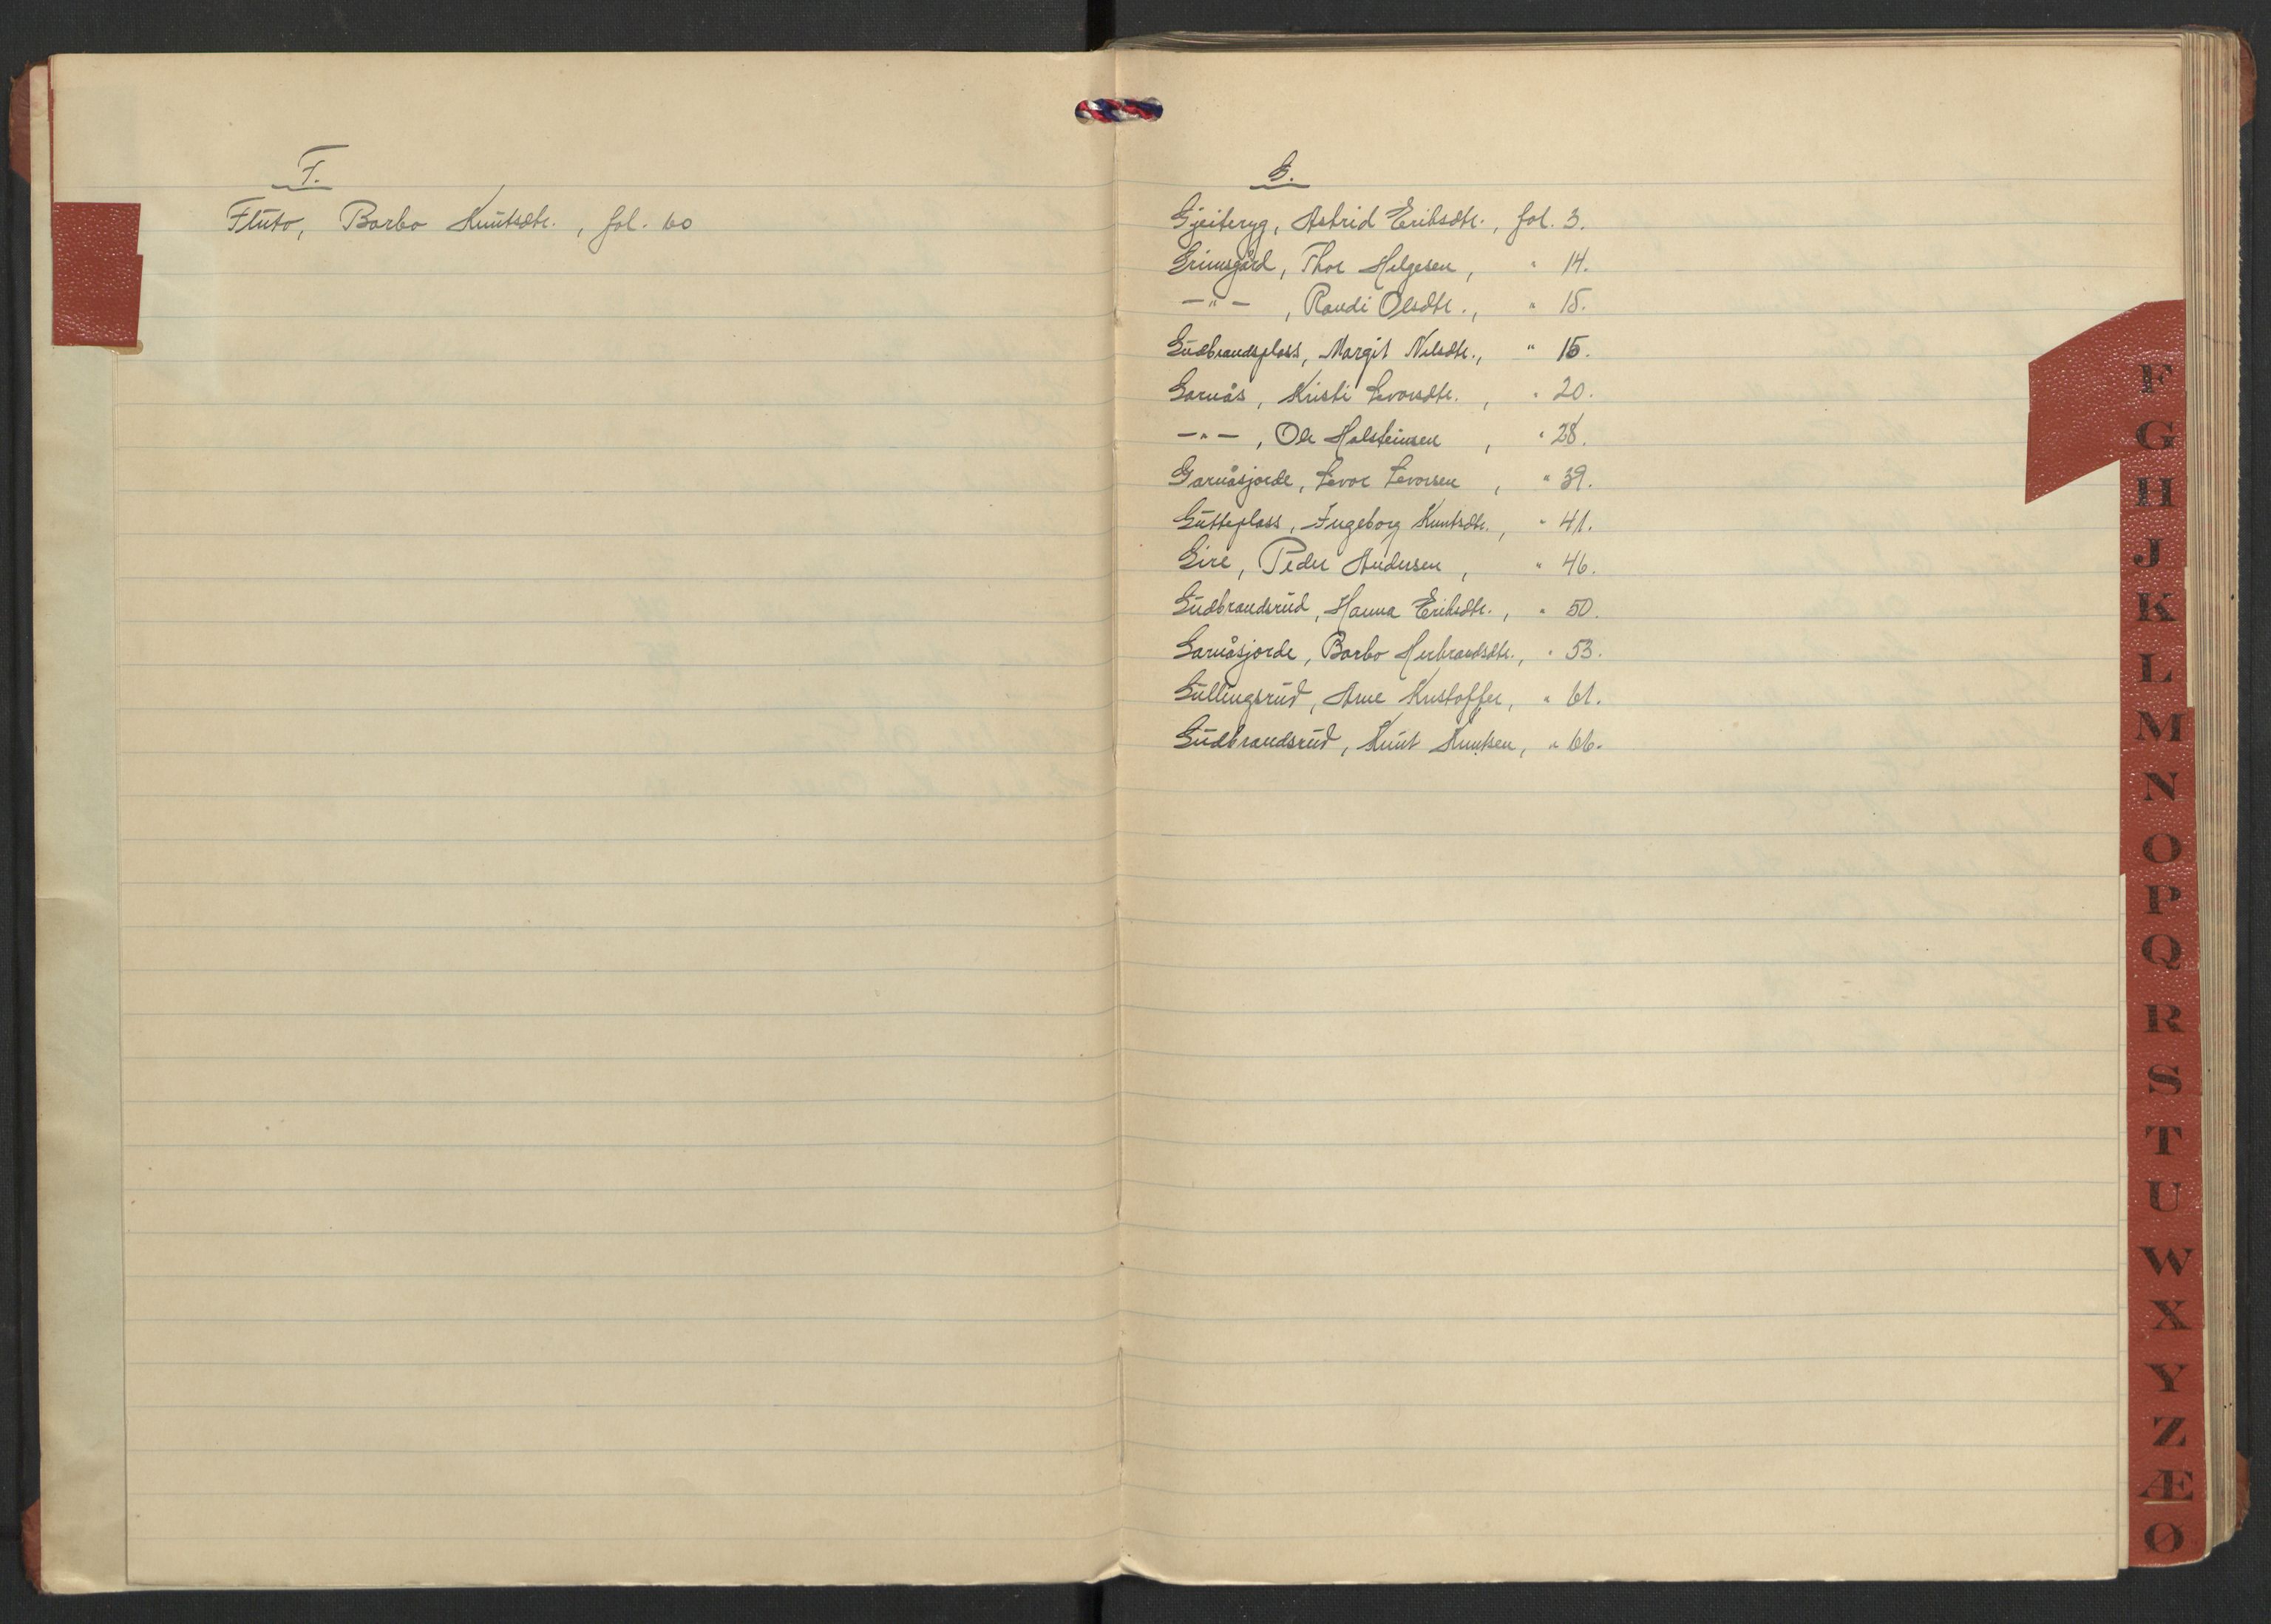 F.
Fluto, Barbo Knutsdtr., fol. 60
G.
Gjeiteryg, Astrid Eriksdtr., fol. 3.
Grimsgård, Thor Helgesen, " 14.
—"— , Randi Olsdtr., " 15.
Gudbrandsplass, Margit Nilsdtr., " 15.
Garnås, Kristi Levorsdtr., " 20.
—"— , Ole Halsteinsen, " 28.
Garnåsjorde, Levor Levorsen, " 39.
Gutteplass, Ingeborg Knutsdtr., " 41.
Gire, Peder Andersen, " 46.
Gudbrandsrud, Hanna Eriksdtr., " 50.
Garnåsjorde, Barbo Herbrandsdtr., " 53.
Gullingsrud, Arne Kristoffer, " 61.
Gudbrandsrud, Knut Knutsen, " 66.
F
G
H
J
K
L
M
N
O
P
Q
R
S
T
U
W
X
Y
Z
Æ
Ø